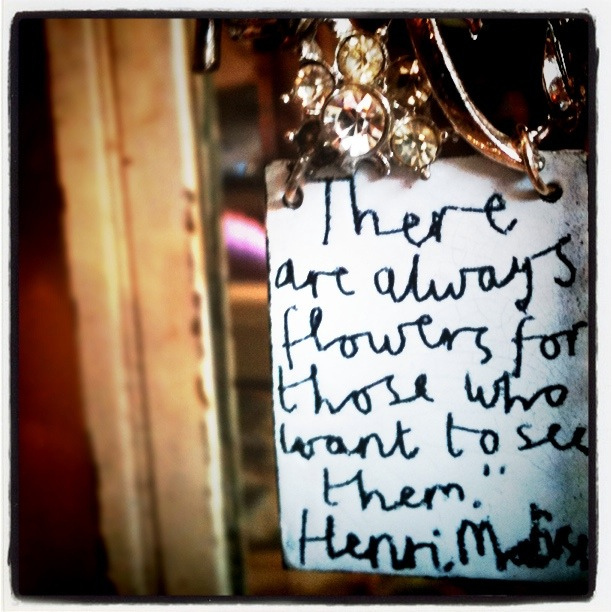 There
are always
flowers for
those who
want to see
them."
Henri. Matisse